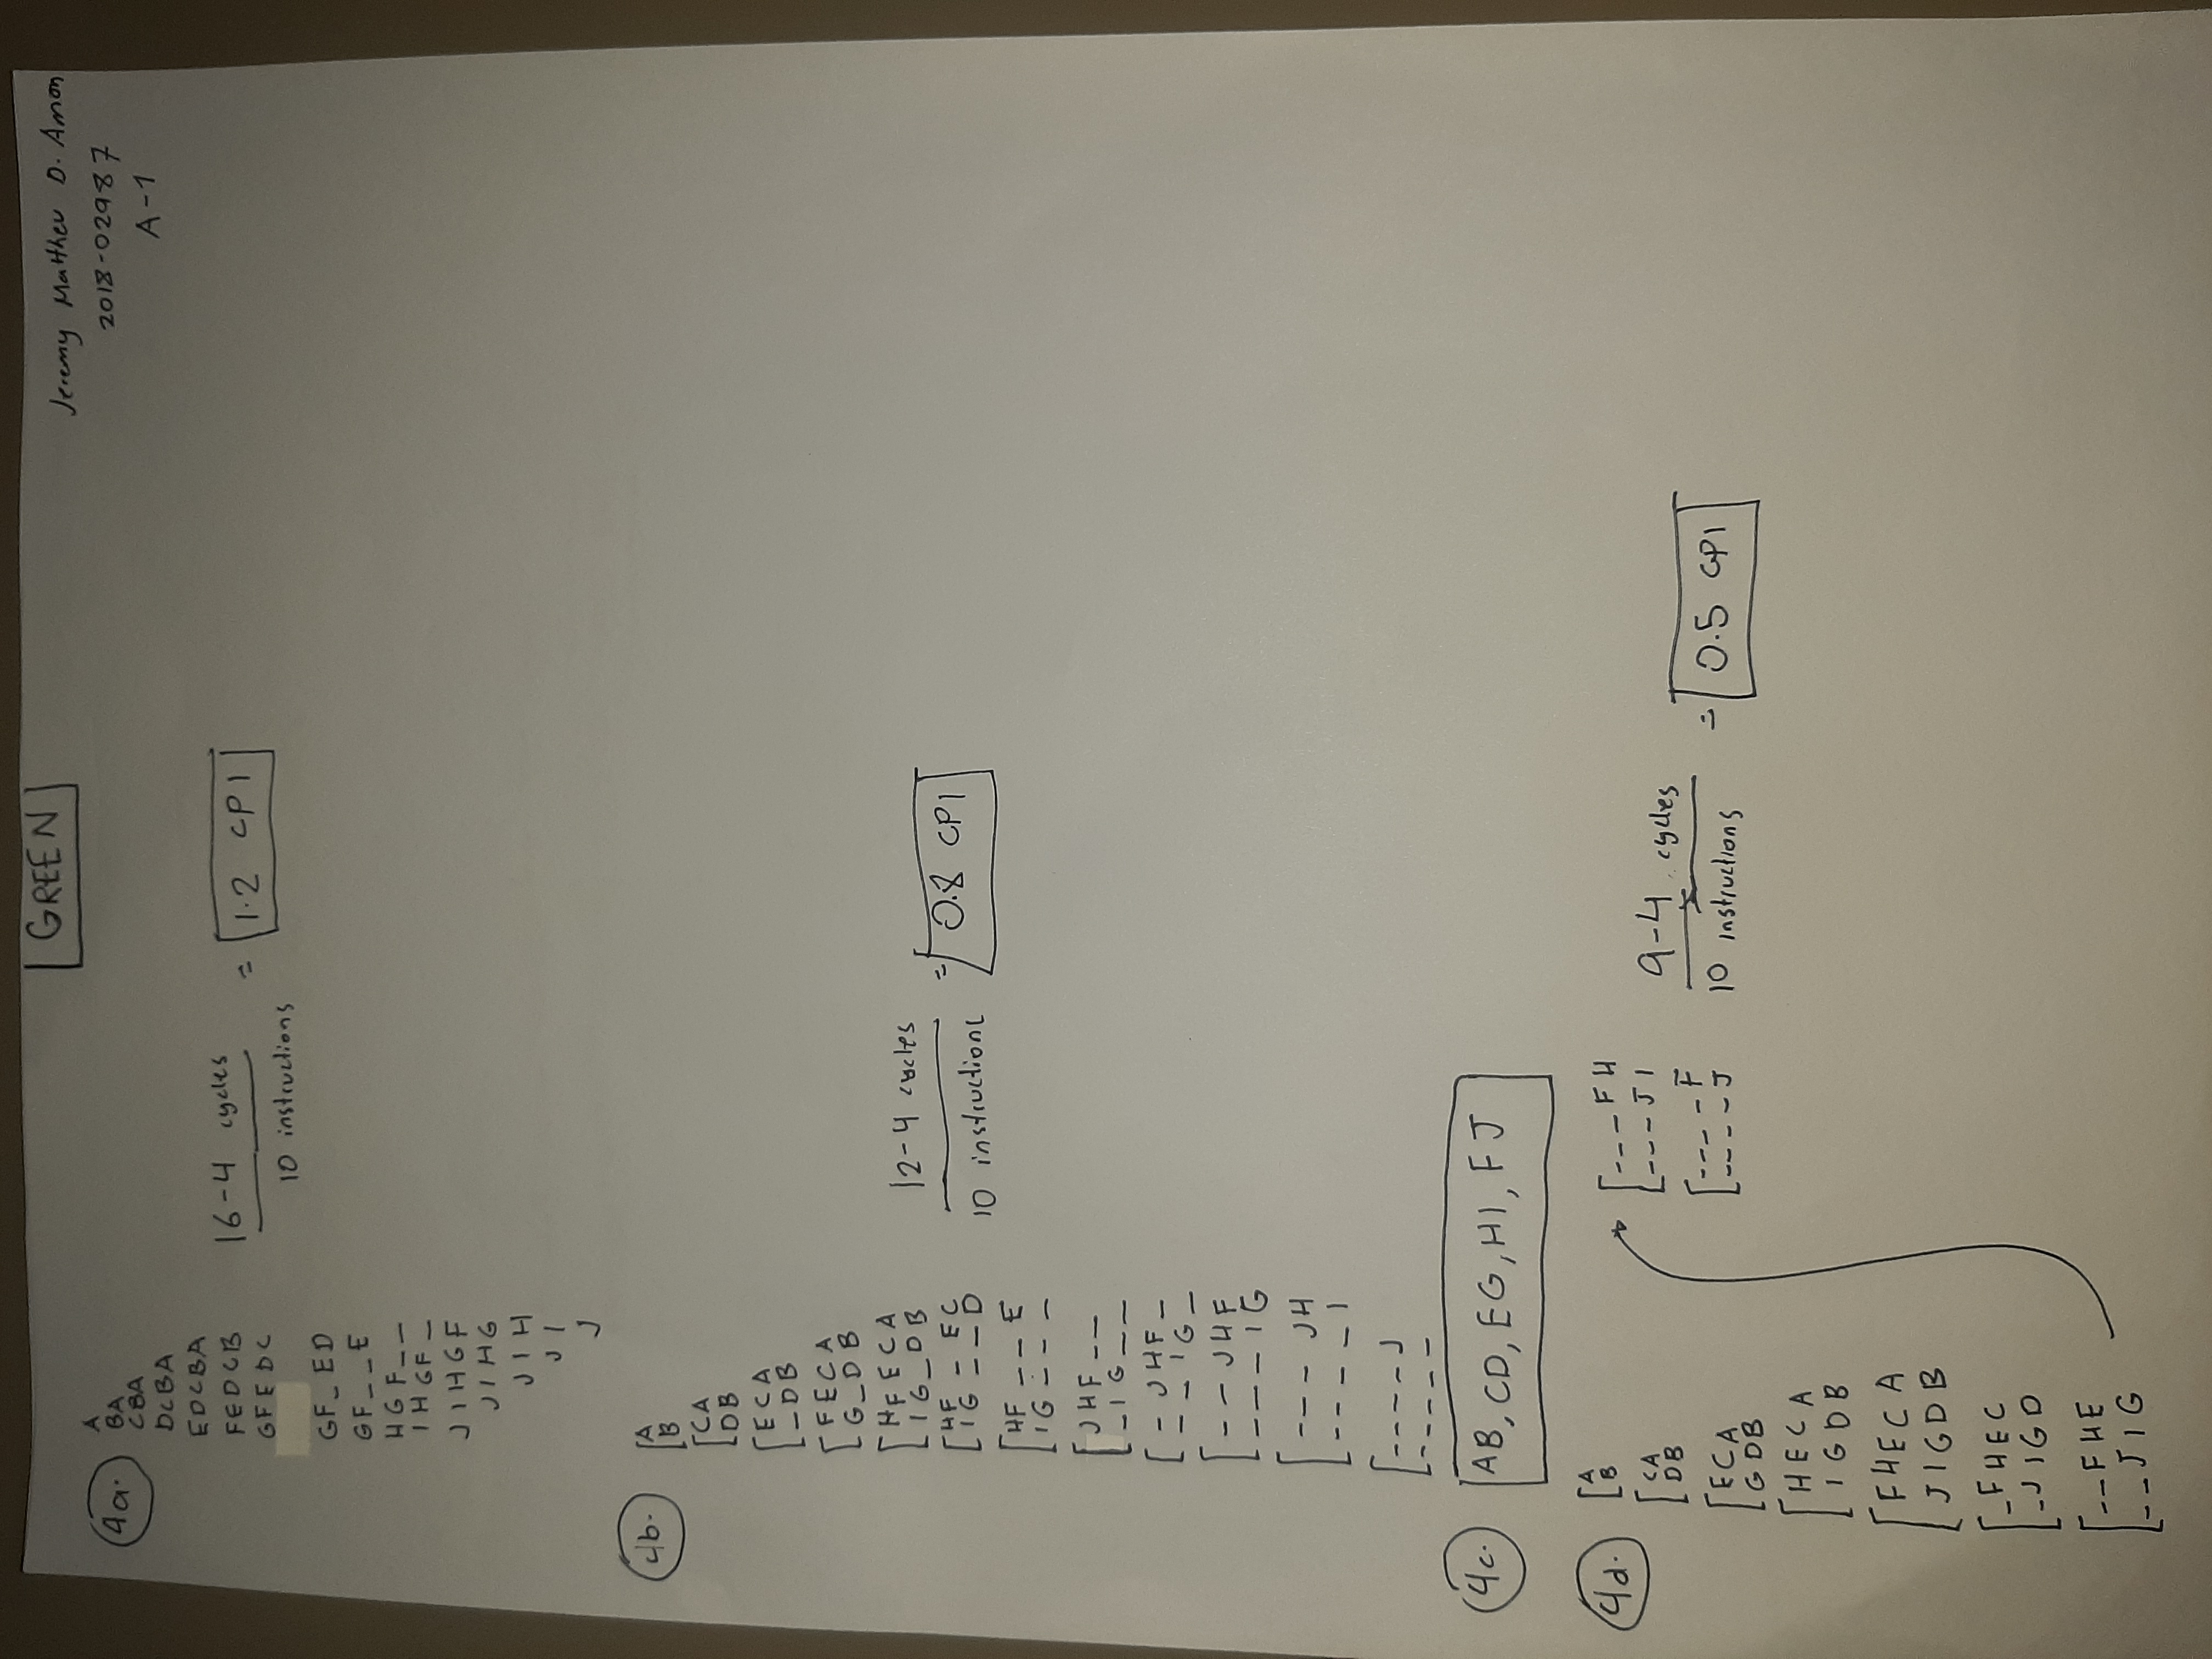 GREEN
Jeremy Matthew D. Amon
2018-02987
A-1
4a.
A
BA
CBA
DCBA
EDCBA
FEDCB
GFEDC
GF_ED
GF__E
HGF__
IHGF_
JIHGF
JIHG
JIH
JI
J
16-4 cycles
10 instructions
= 1.2 CPI
4b.
[A
B
[CA
DB
[ECA
_DB
[FECA
G_DB
[HFECA
IG_DB
[HF_EC
IG__D
[HF__E
IG___
[JHF__
_IG__
[_JHF_
__IG_
[__JHF
___IG
[___JH
____I
[____J
_____
12-4 cycles
10 instructions
= 0.8 CPI
4c.
AB, CD, EG, HI, FJ
4d.
[A
B
[CA
DB
[ECA
GDB
[HECA
IGDB
[FHECA
JIGDB
[_FHEC
_JIGD
[__FHE
__JIG
[___FH
___JI
[____F
____J
9-4 cycles
10 instructions
= 0.5 CPI